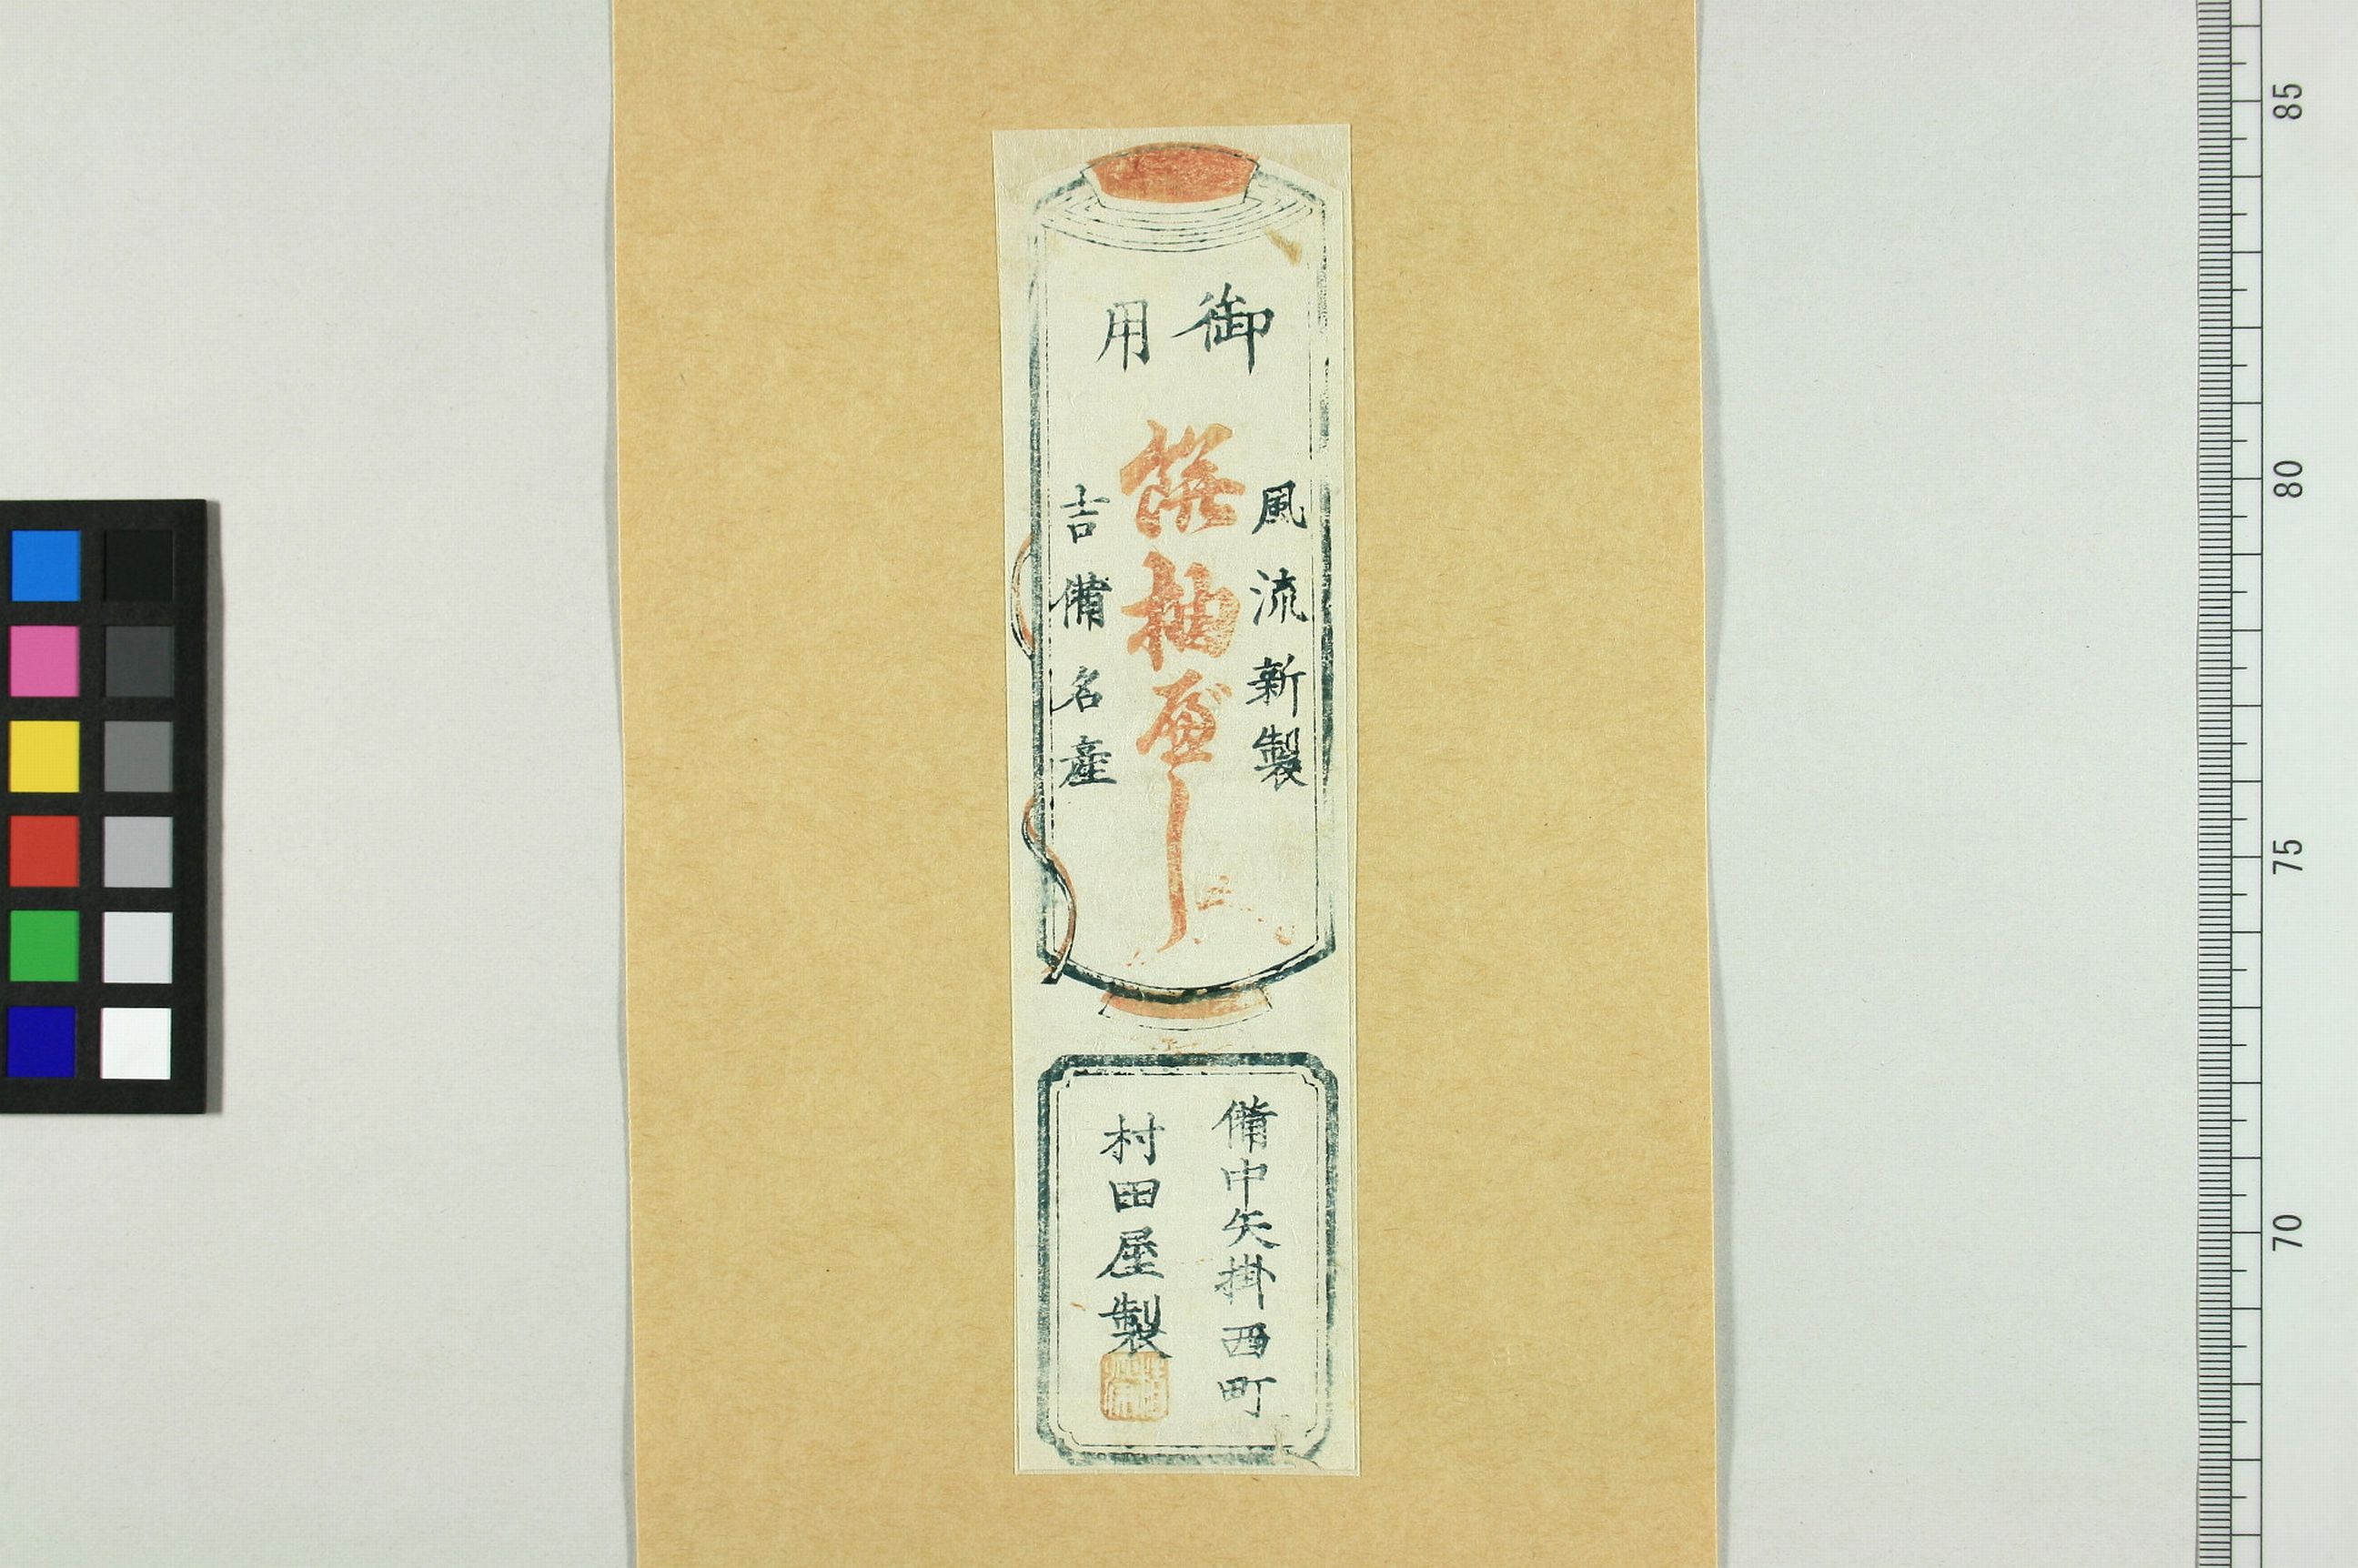 御用
風流新製
柚べし
吉備名産
備中矢掛西町
村田屋製
85
80
75
70